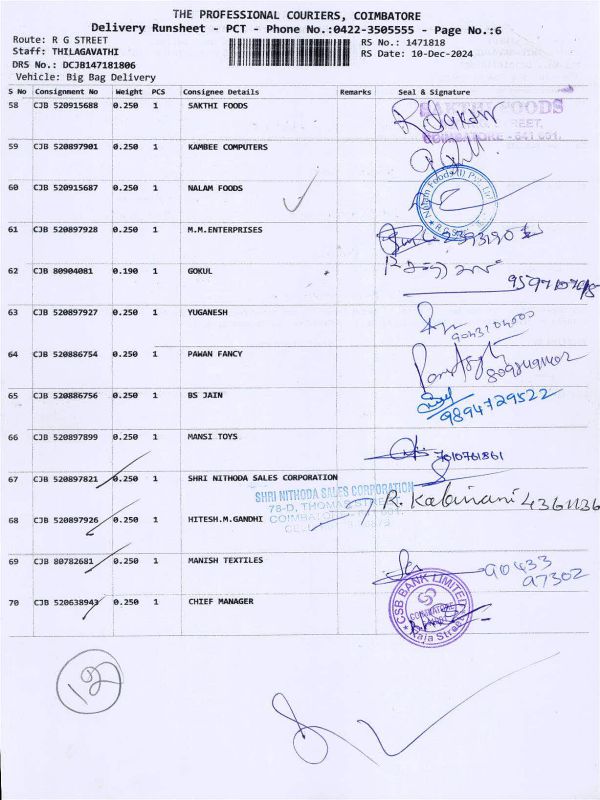 THE PROFESSIONAL COURIERS, COIMBATORE
Delivery Runsheet - PCT - Phone No.:0422-3505555 - Page No.:6
Route: R G STREET
RS No.: 1471818
Staff: THILAGAVATHI
RS Date: 10-Dec-2024
DRS No.: DCJB147181806
Vehicle: Big Bag Delivery
S No Consignment No Weight PCS Consignee Details Remarks Seal & Signature
58 CJB 520915688 0.250 1 SAKTHI FOODS
SAKTHI FOODS
STREET.
COIMBATORE - 641 001.
59 CJB 520897901 0.250 1 KAMBEE COMPUTERS
60 CJB 520915687 0.250 1 NALAM FOODS
Nalam Foods (I) Pvt. Ltd.
61 CJB 520897928 0.250 1 M.M.ENTERPRISES
62 CJB 80904081 0.190 1 GOKUL
63 CJB 520897927 0.250 1 YUGANESH
64 CJB 520886754 0.250 1 PAWAN FANCY
65 CJB 520886756 0.250 1 BS JAIN
9894729522
66 CJB 520897899 0.250 1 MANSI TOYS
7010761861
67 CJB 520897821 0.250 1 SHRI NITHODA SALES CORPORATION
SHRI NITHODA SALES CORPORATION
78-D, THOMAS STREET,
COIMBATORE
R. Kalaivani 4361136
68 CJB 520897926 0.250 1 HITESH.M.GANDHI
69 CJB 80782681 0.250 1 MANISH TEXTILES
90433
97302
70 CJB 520638943 0.250 1 CHIEF MANAGER
CSB BANK LIMITED
COIMBATORE
Raja Street
12